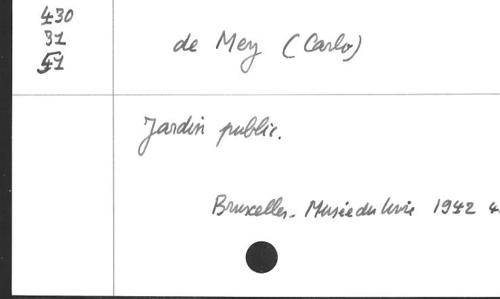 430
31
51
de Mey (Carlo)
Jardin public.
Bruxelles - Musée du livre 1942 4.